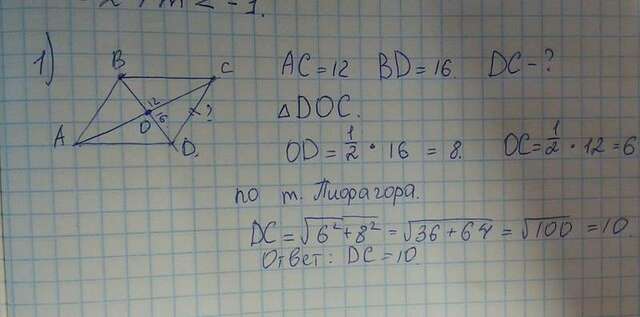 1)
B C A D O 12 16 ?
AC=12 BD=16. DC-?
△DOC.
OD=1/2·16=8. OC=1/2·12=6
по т. Пифагора.
DC=√6²+8²=√36+64=√100=10.
Ответ: DC=10.